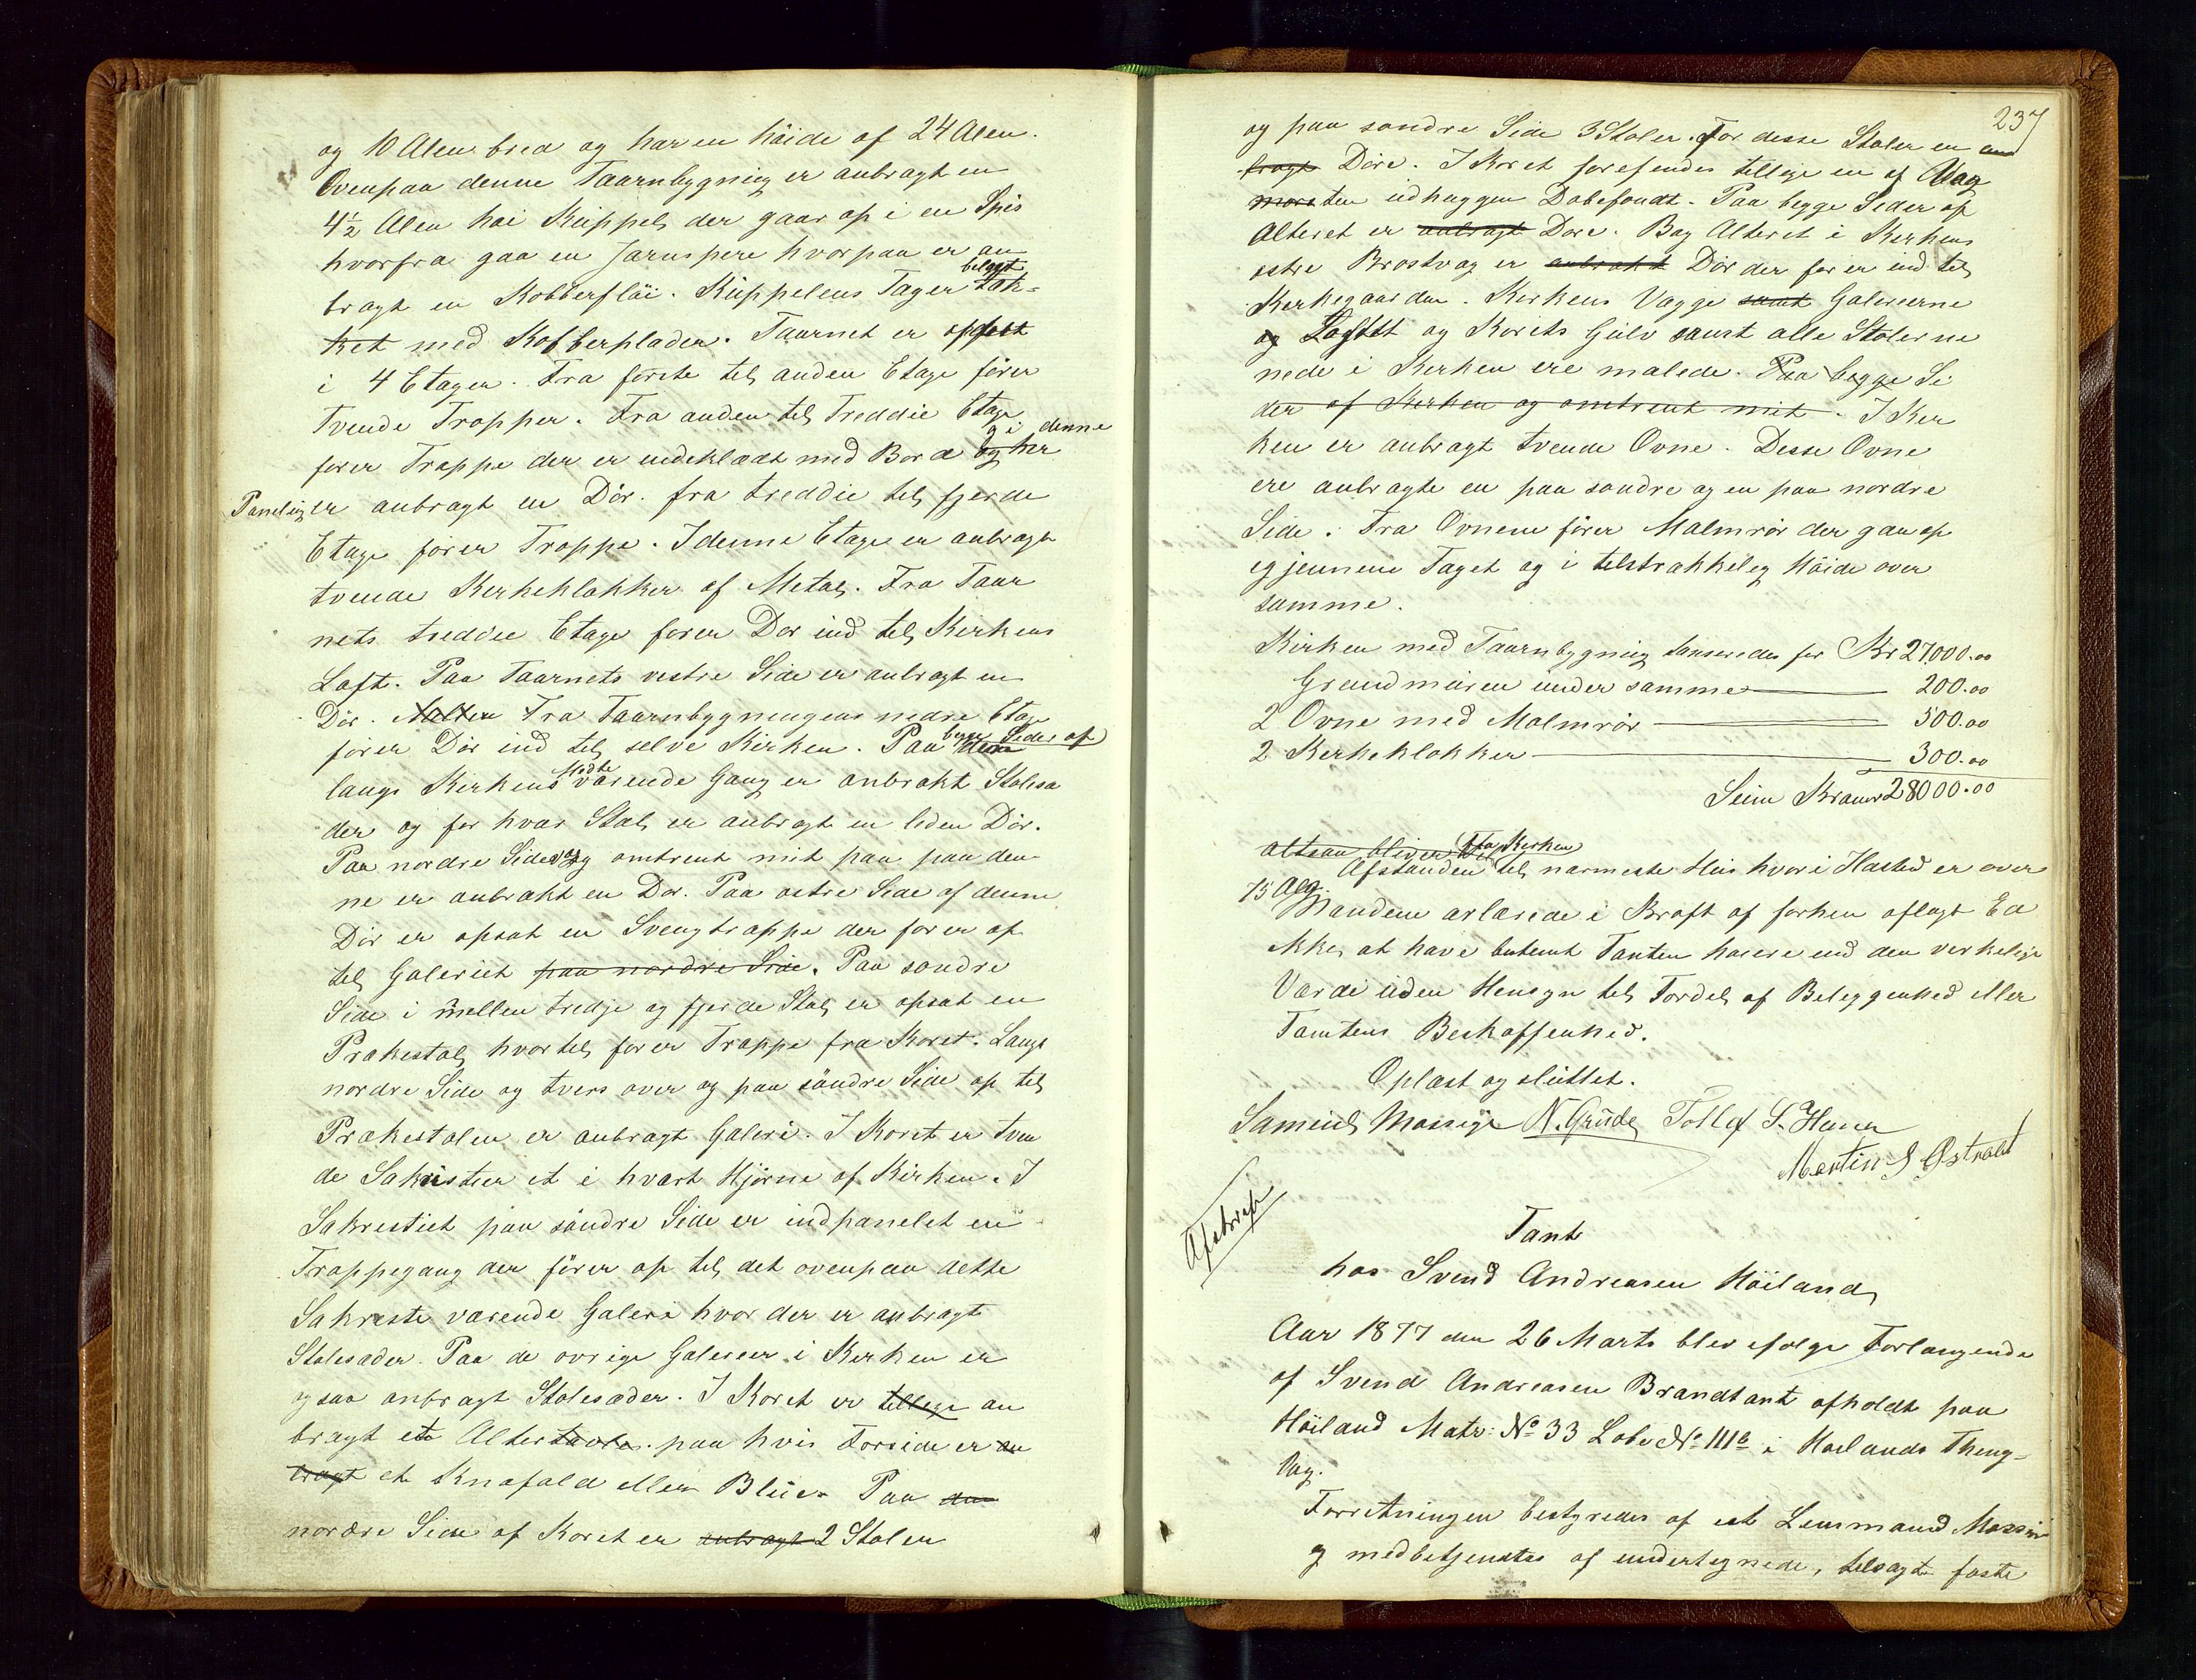 og 10 Alen bred og har en höide af 24 Alen.
Ovenpaa denne Taarnbygning er anbragt en
4½ Alen høi Küppel, der gaar op i en Spis
hvorfra gaa en Jærnspere hvorpaa er an
belagt
bragt en Kobberflöi. Küppelens Tag er tæk=
ket med Kobberplader. Taarnet er opført
i 4 Etager. Fra förste til anden Etage förer
Tvende Trapper. Fra anden til Treddie Etage
g i denne
forer Trappe der er indeklædt med Bord og her
Paneling er anbragt en Dör. fra treddie til fjerde
Etage förer Trappe. I denne Etage er anbragt
tvende Kerkeklokker af Metal. Fra Taar
nets treddie Etage forer Dør ind til Kirkens
Loft. Paa Taarnets vestre Side er anbragt en
Dör. Fra Taarnbygningens nedre Etage
begge Sider af
förer Dör ind til selve Kirken. Paa
Midte
langs Kirkens værende Gang er anbrakt Stolesæ
der og for hver Stol er anbragt en liden Dör.
Paa nordre Sidevæg omtrent mit paa paa den
ne er anbrakt en Dør. Paa østre Side af denne
Dör er opsat en Svengtrappe der forer op
til Galeriet paa nordre Side. Paa søndre
Side i mellem tredje og fjerde Stol er opsat en
Prækestol, hvortil forer Trappe fra Koret. Langs
nordre Side og tvers over og paa söndre Side op til
Prækestolen er anbragt Galeri. I Koret er tven
de Sakristier et i hvært Hjörne af Kirken. I
Sakrestiet paa söndre Side er indpanelet en
Trappegang der förer op til det ovenpaa dette
Sakreste værende Galeri hvor der er anbragt
Stolesæder. Paa de ovrige Galerier i Kerken er
ogsaa anbragt Stolesæder. I Koret er tellige an
bragt et Altertavle. paa hvis Forside er an
bragt et Knæfald eller Paa den
nordre Side af Koret er anbragt 2 Stoler
237
og paa søndre Side 3 Stoler. For desse Stoler er an
bragt Döre. I Koret forefindes tellige en af
ten udhuggen Döbefondt. Paa begge Sider af
Alteret er anbragt Döre. Bag Alteret i Kerkens
østre Brostvæg er anbrakt Dör der forer ind til
Kerkegaarden. Kirkens Vægge samt Galerierne
og Loftet og Korets Gülv samt alle Stolerne
nede i Kerken ere malede. Paa begge Si
der af Kerken og omtrent mit. I Ker
ken er anbragt tvende Ovne. Desse Ovne
ere anbragte en paa søndre og en paa nordre
Side. Fra Ovnene förer Malmrör der gaa op
egjennem Taget og i telstrækkelig Höide over
samme.
Kirken med Taarnbygning taxeredes for Kr 27,000.00
Grundmüren ünder samme 200.00
2 Ovne med Malmrör 500.00
2 Kerkeklokker 300.00
Süm Kroner 28000.00
Fra Kerken
altsaa bliver
Afstanden til nærmeste Hüs hvori Ilsted er over
75 Al.
Mændene erklærede i Kraft af forhen aflagt Ed
ikke at have bestemt Taxten høiere end den verkelige
Værdi üden Hensyn til Fordel af Beleggenhed eller
Tomtens Beskaffenhed.
Oplæst og slüttet.
Samüel Massige N. Grüde Tollef S. Hana
Martin S Østrabt
Afskrevet
Taxt
hos Svend Andreasen Höiland,
Aar 1877 den 26 Marts blev efolge Forlangende
af Svend Andreasen Brandtaxt afholdt paa
Höiland Matr: No 33 Lobe No 111b i Høilands Theng-
lag.
Forretningen bestyredes af est Lensmand Massige
og medbetjentes af undertegnede, telsagte faste